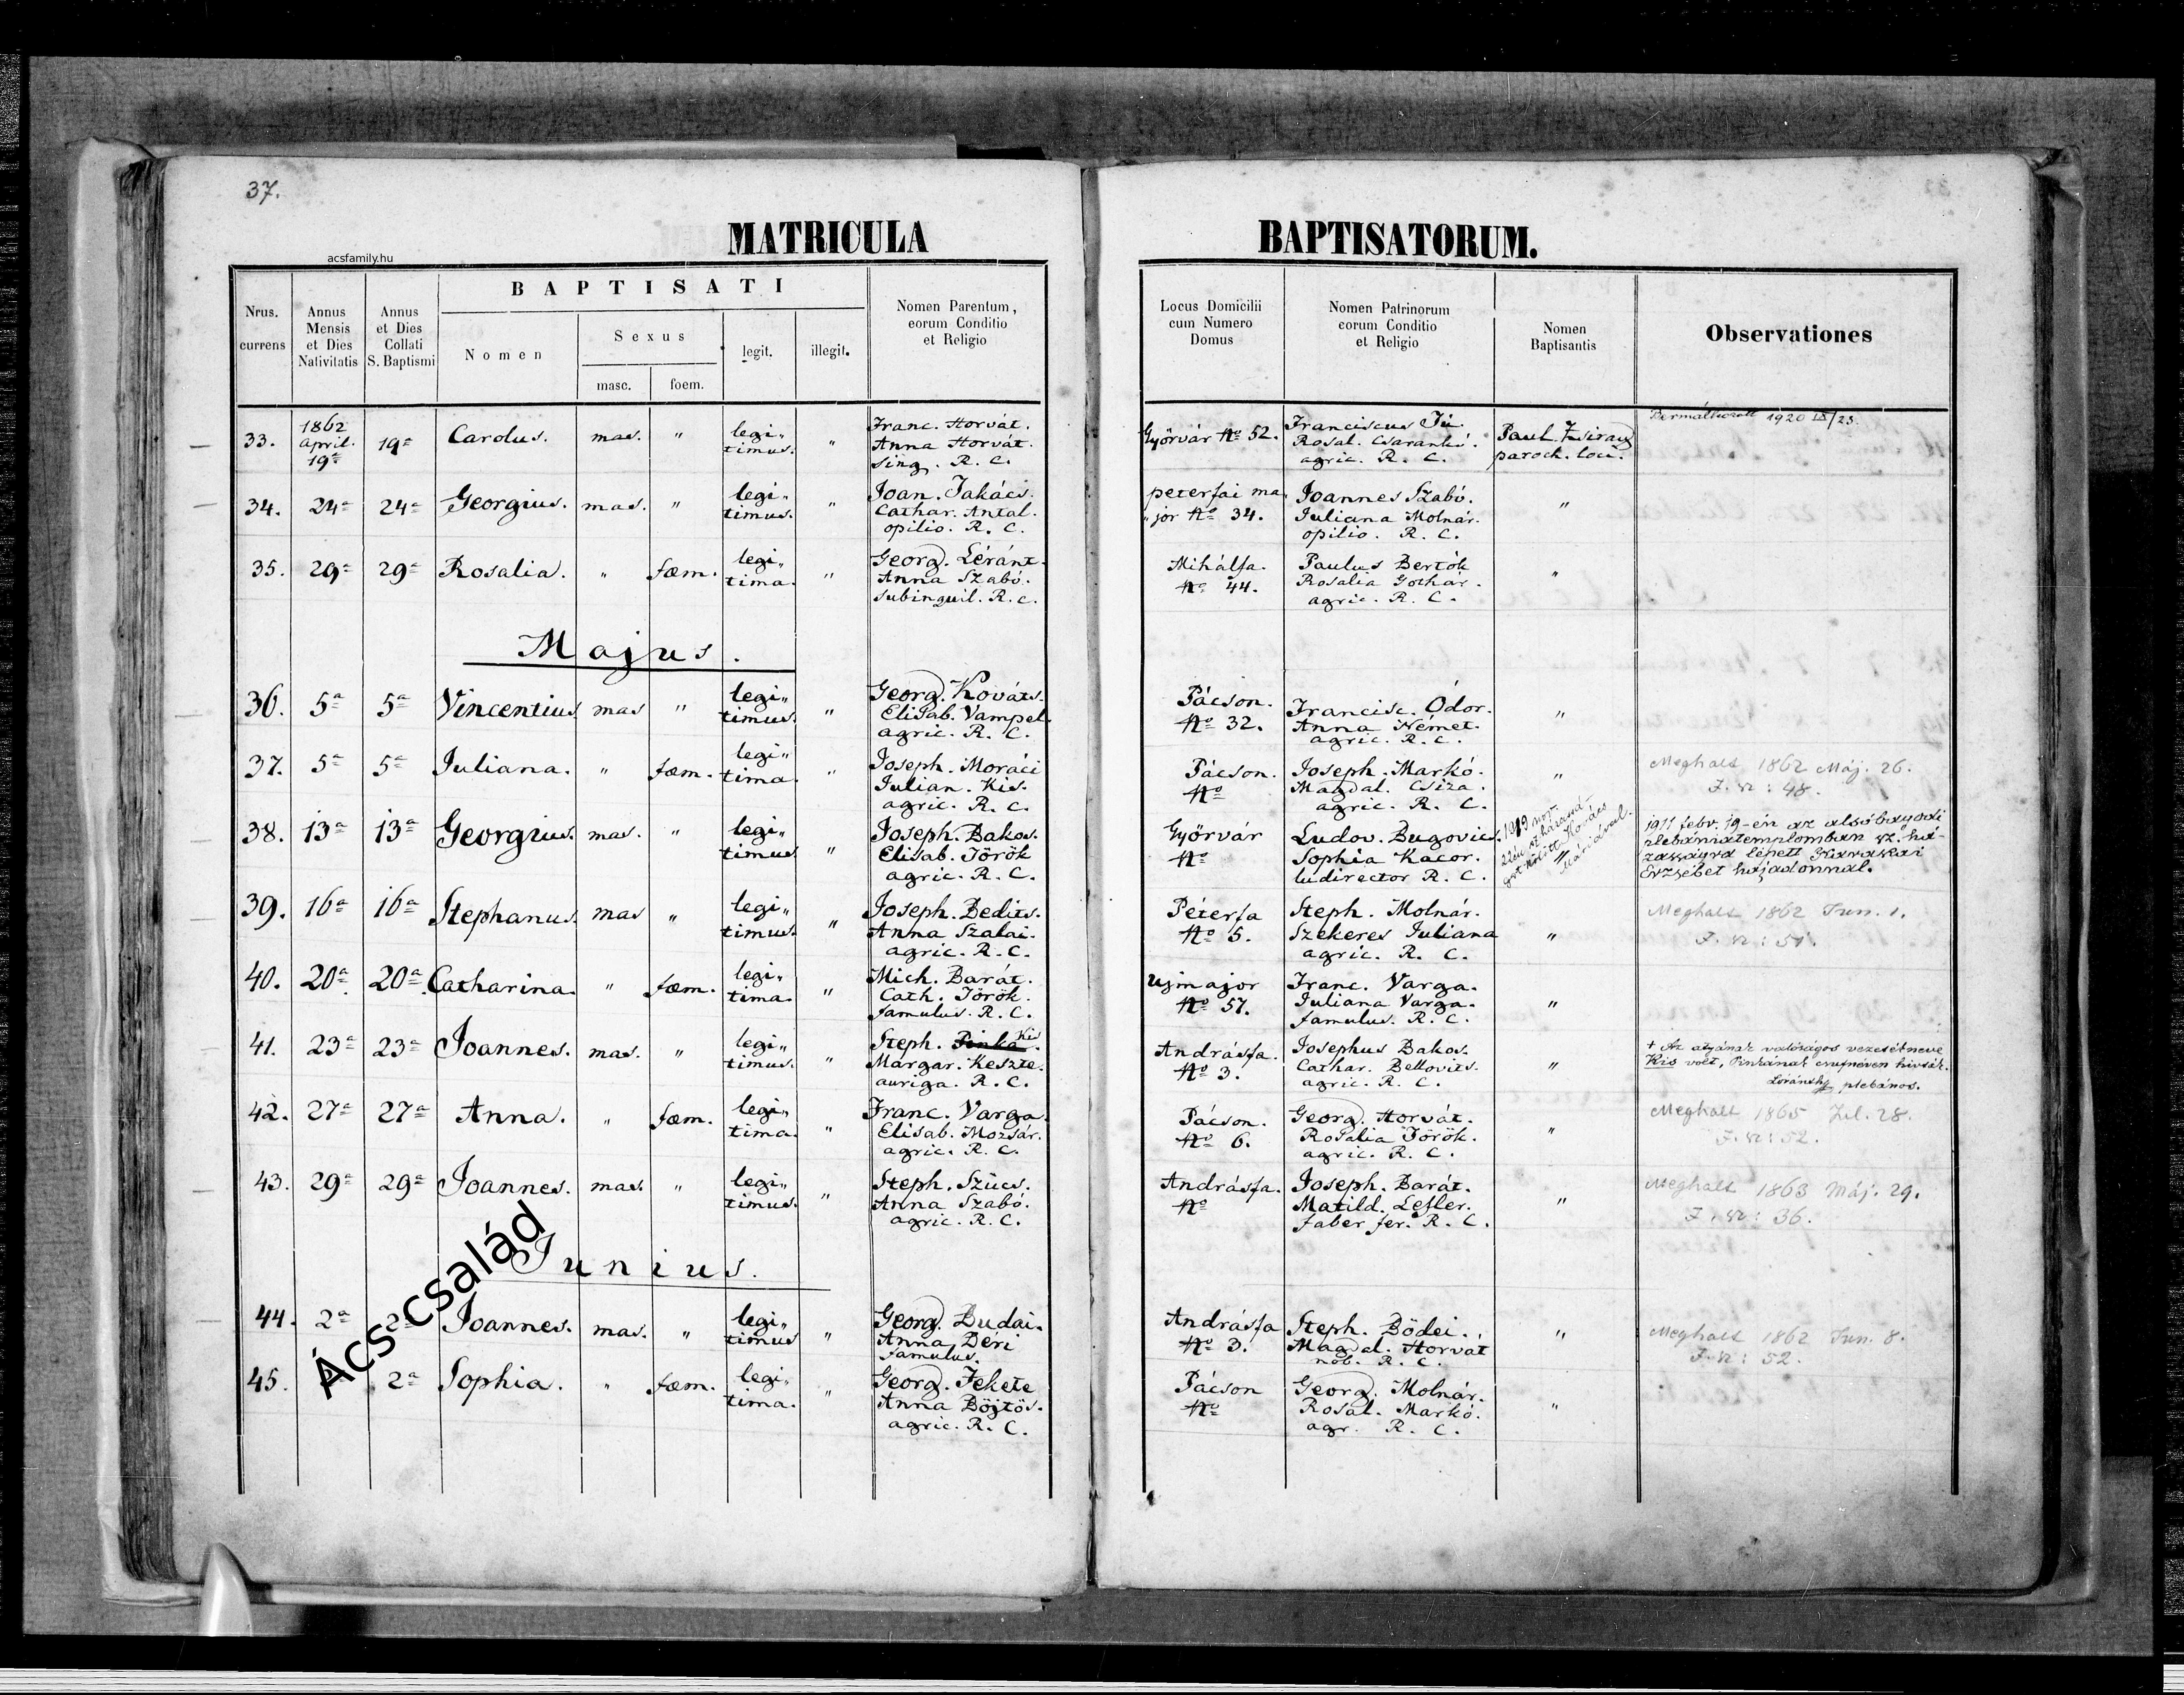 37.
MATRICULA BAPTISATORUM.
acsfamily.hu
BAPTISATI
Nrus. currens
Annus Mensis et Dies Nativitatis
Annus et Dies Collati S. Baptismi
Nomen
Sexus
masc.
foem.
legit.
illegit.
Nomen Parentum, eorum Conditio et Religio
Locus Domicilii cum Numero Domus
Nomen Patrinorum eorum Conditio et Religio
Nomen Baptisantis
Observationes
33. 1862 April. 19ª 19ª Carolus. mas. " legi„ timus. " Franc. Horvát. Anna Horvát. Sing. R. C. Győrvár Nº 52. Franciscus Rosal. agric. R. C. Paul. paroch. loci. Bermálkozott 1920 IX/23.
34. 24ª 24ª Georgius. mas. " legi„ timus. " Joan. Takács. Cathar. Antal. opilio. R. C. peterfai ma„ jor Nº 34. Joannes Szabó. Juliana Molnár. opilio. R. C. "
35. 29ª 29ª Rosalia. " fœm. legi„ tima. " Georg. Léránt. Anna Szabó. Subinquil. R. C. Mihálfa. Nº 44. Paulus Bertók Rosalia Gothár. agric. R. C. "
Majus.
36. 5ª 5ª Vincentius mas " legi„ timus. " Georg. Kováts. Elisab. Vampel. agric. R. C. Pácson. Nº 32. Francisc. Ódor. Anna Német. agric. R. C. "
37. 5ª 5ª Juliana. " fœm. legi„ tima " Joseph. Moráci Julian. Kis. agric. R. C. Pácson. Nº Joseph. Markó. Magdal. Csiza. agric. R. C. " Meghalt 1862 Máj. 26. 48.
38. 13ª 13ª Georgius. mas. " legi„ timus " Joseph. Bakos. Elisab. Török agric. R. C. Győrvár Nº Ludov. Bugovics. Sophia Kacor. ludirector R. C. " 1911 febr. 19-én az alsóbagodi plebániatemplomban sz. há- zasságra lépett Erzsébet hajadonnal.
39. 16ª 16ª Stephanus. mas " legi„ timus. " Joseph. Bedits. Anna Szalai. agric. R. C. Péterfa Nº 5. Steph. Molnár. Szekeres Juliana agric. R. C. " Meghalt 1862 Jun. 1. 51.
40. 20ª 20ª Catharina. " fœm. legi„ tima. " Mich. Barát. Cath. Török. famulus. R. C. Ujmajor Nº 57. Franc. Varga. Juliana Varga. famulus. R. C. "
41. 23ª 23ª Joannes. mas. " legi„ timus. " Steph. Pinka Kis. Margar. Keszte. auriga. R. C. Andrásfa. Nº 3. Josephus Bakos. Cathar. Bellovits. agric. R. C. " + Az atyának valóságos vezetékneve Kis volt, Pinkának csúfnéven hivták. plebános.
42. 27ª 27ª Anna. " fœm. legi„ tima. " Franc. Varga. Elisab. Mozsár. agric. R. C. Pácson. Nº 6. Georg. Horvát. Rosalia Török. agric. R. C. " Meghalt 1865 Jul. 28. 52.
43. 29ª 29ª Joannes. mas. " legi„ timus. " Steph. Szücs. Anna Szabó. agric. R. C. Andrásfa. Nº Joseph. Barát. Matild. Lefler. faber fer. R. C. " Meghalt 1863 Máj. 29. 36.
Junius.
44. 2ª 2ª Joannes. mas. " legi„ timus " Georg. Budai. Anna Déri famulus. Andrásfa Nº 3. Steph. Bödei. Magdal. Horvát nob. R. C. " Meghalt 1862 Jun. 8. 52.
45. 2ª Sophia. " fœm. legi„ tima. " Georg. Fekete Anna Böjtös. agric. R. C. Pácson Nº Georg. Molnár. Rosal. Markó. agr. R. C. "
Ács család